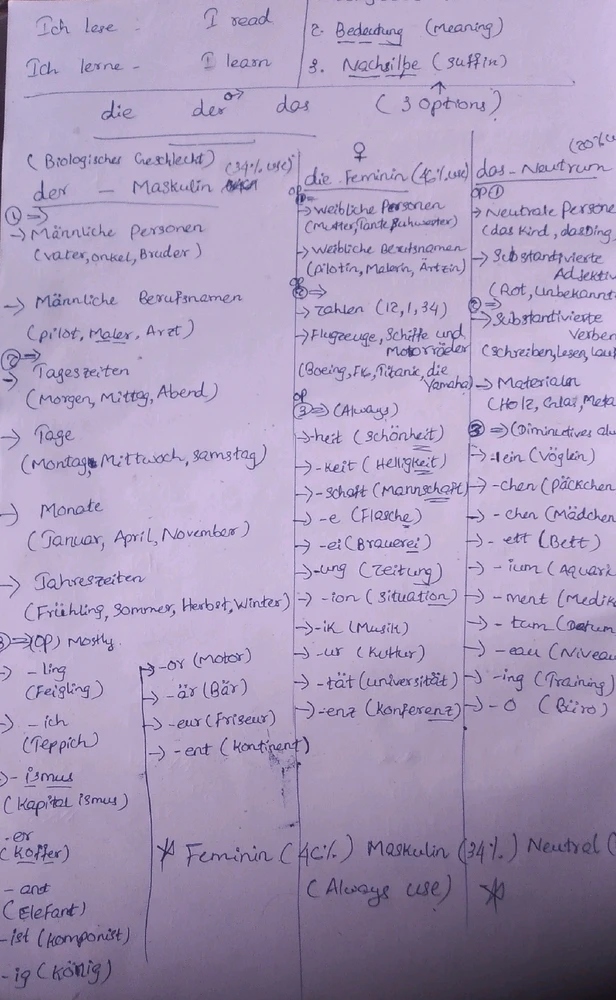 Ich lese - I read
Ich lerne - I learn
2. Bedeutung (meaning)
3. Nachsilbe (suffin)
die der das (3 options)
(Biologisches Geschlecht) (34% use)
der - Maskulin
① ⇒
→ Männliche Personen
(Vater, onkel, Bruder)
→ Männliche Berufsnamen
(pilot, Maler, Arzt)
② ⇒
→ Tageszeiten
(Morgen, Mittag, Abend)
→ Tage
(Montag, Mittwoch, Samstag)
→ Monate
(Januar, April, November)
→ Jahreszeiten
(Frühling, Sommer, Herbst, Winter)
3 ⇒ (OP) Mostly.
→ - ling
(Feigling)
→ - ich
(Teppich)
→ - ismus
(Kapitalismus)
- er
(Koffer)
- ant
(Elefant)
- ist (Komponist)
- ig (König)
→ -or (Motor)
→ -är (Bär)
→ -eur (Friseur)
→ -ent (Kontinent)
♀
die Feminin (46% use)
OP ①
→ weibliche Personen
(Mutter, Tante,
→ Weibliche Berufsnamen
(pilotin, Malerin, Ärtzin)
OP ② ⇒
→ zahlen (12, 1, 34)
→ Flugzeuge, Schiffe und
Motorräder
(Boeing, Titanic, die
Yamaha)
OP
③ ⇒ (Always)
→ -heit (Schönheit)
→ -keit (Helligkeit)
→ -schaft (Mannschaft)
→ -e (Flasche)
→ -ei (Brauerei)
→ -ung (Zeitung)
→ -ion (Situation)
→ -ik (Musik)
→ -ur (Kultur)
→ -tät (Universität)
→ -enz (Konferenz)
(20% u
das - Neutrum
OP ①
→ Neutrale Persone
(das Kind, das Ding
→ Substantivierte
Adjektiv
(Rot, Unbekannt
② ⇒
→ Substantivierte
Verben
(schreiben, lesen, lau
→ Materialn
(Holz, Glas, Meta
③ ⇒ (Diminutives al
→ -lein (Vöglein)
→ -chen (Päckchen
→ - chen (Mädchen
→ - ett (Bett)
→ - ium (Aquari
→ - ment (Medik
→ - tum (Datum
→ - eau (Niveau
→ -ing (Training)
→ - o (Büro)
* Feminin (46%) Maskulin (34%) Neutral (
(Always use) *